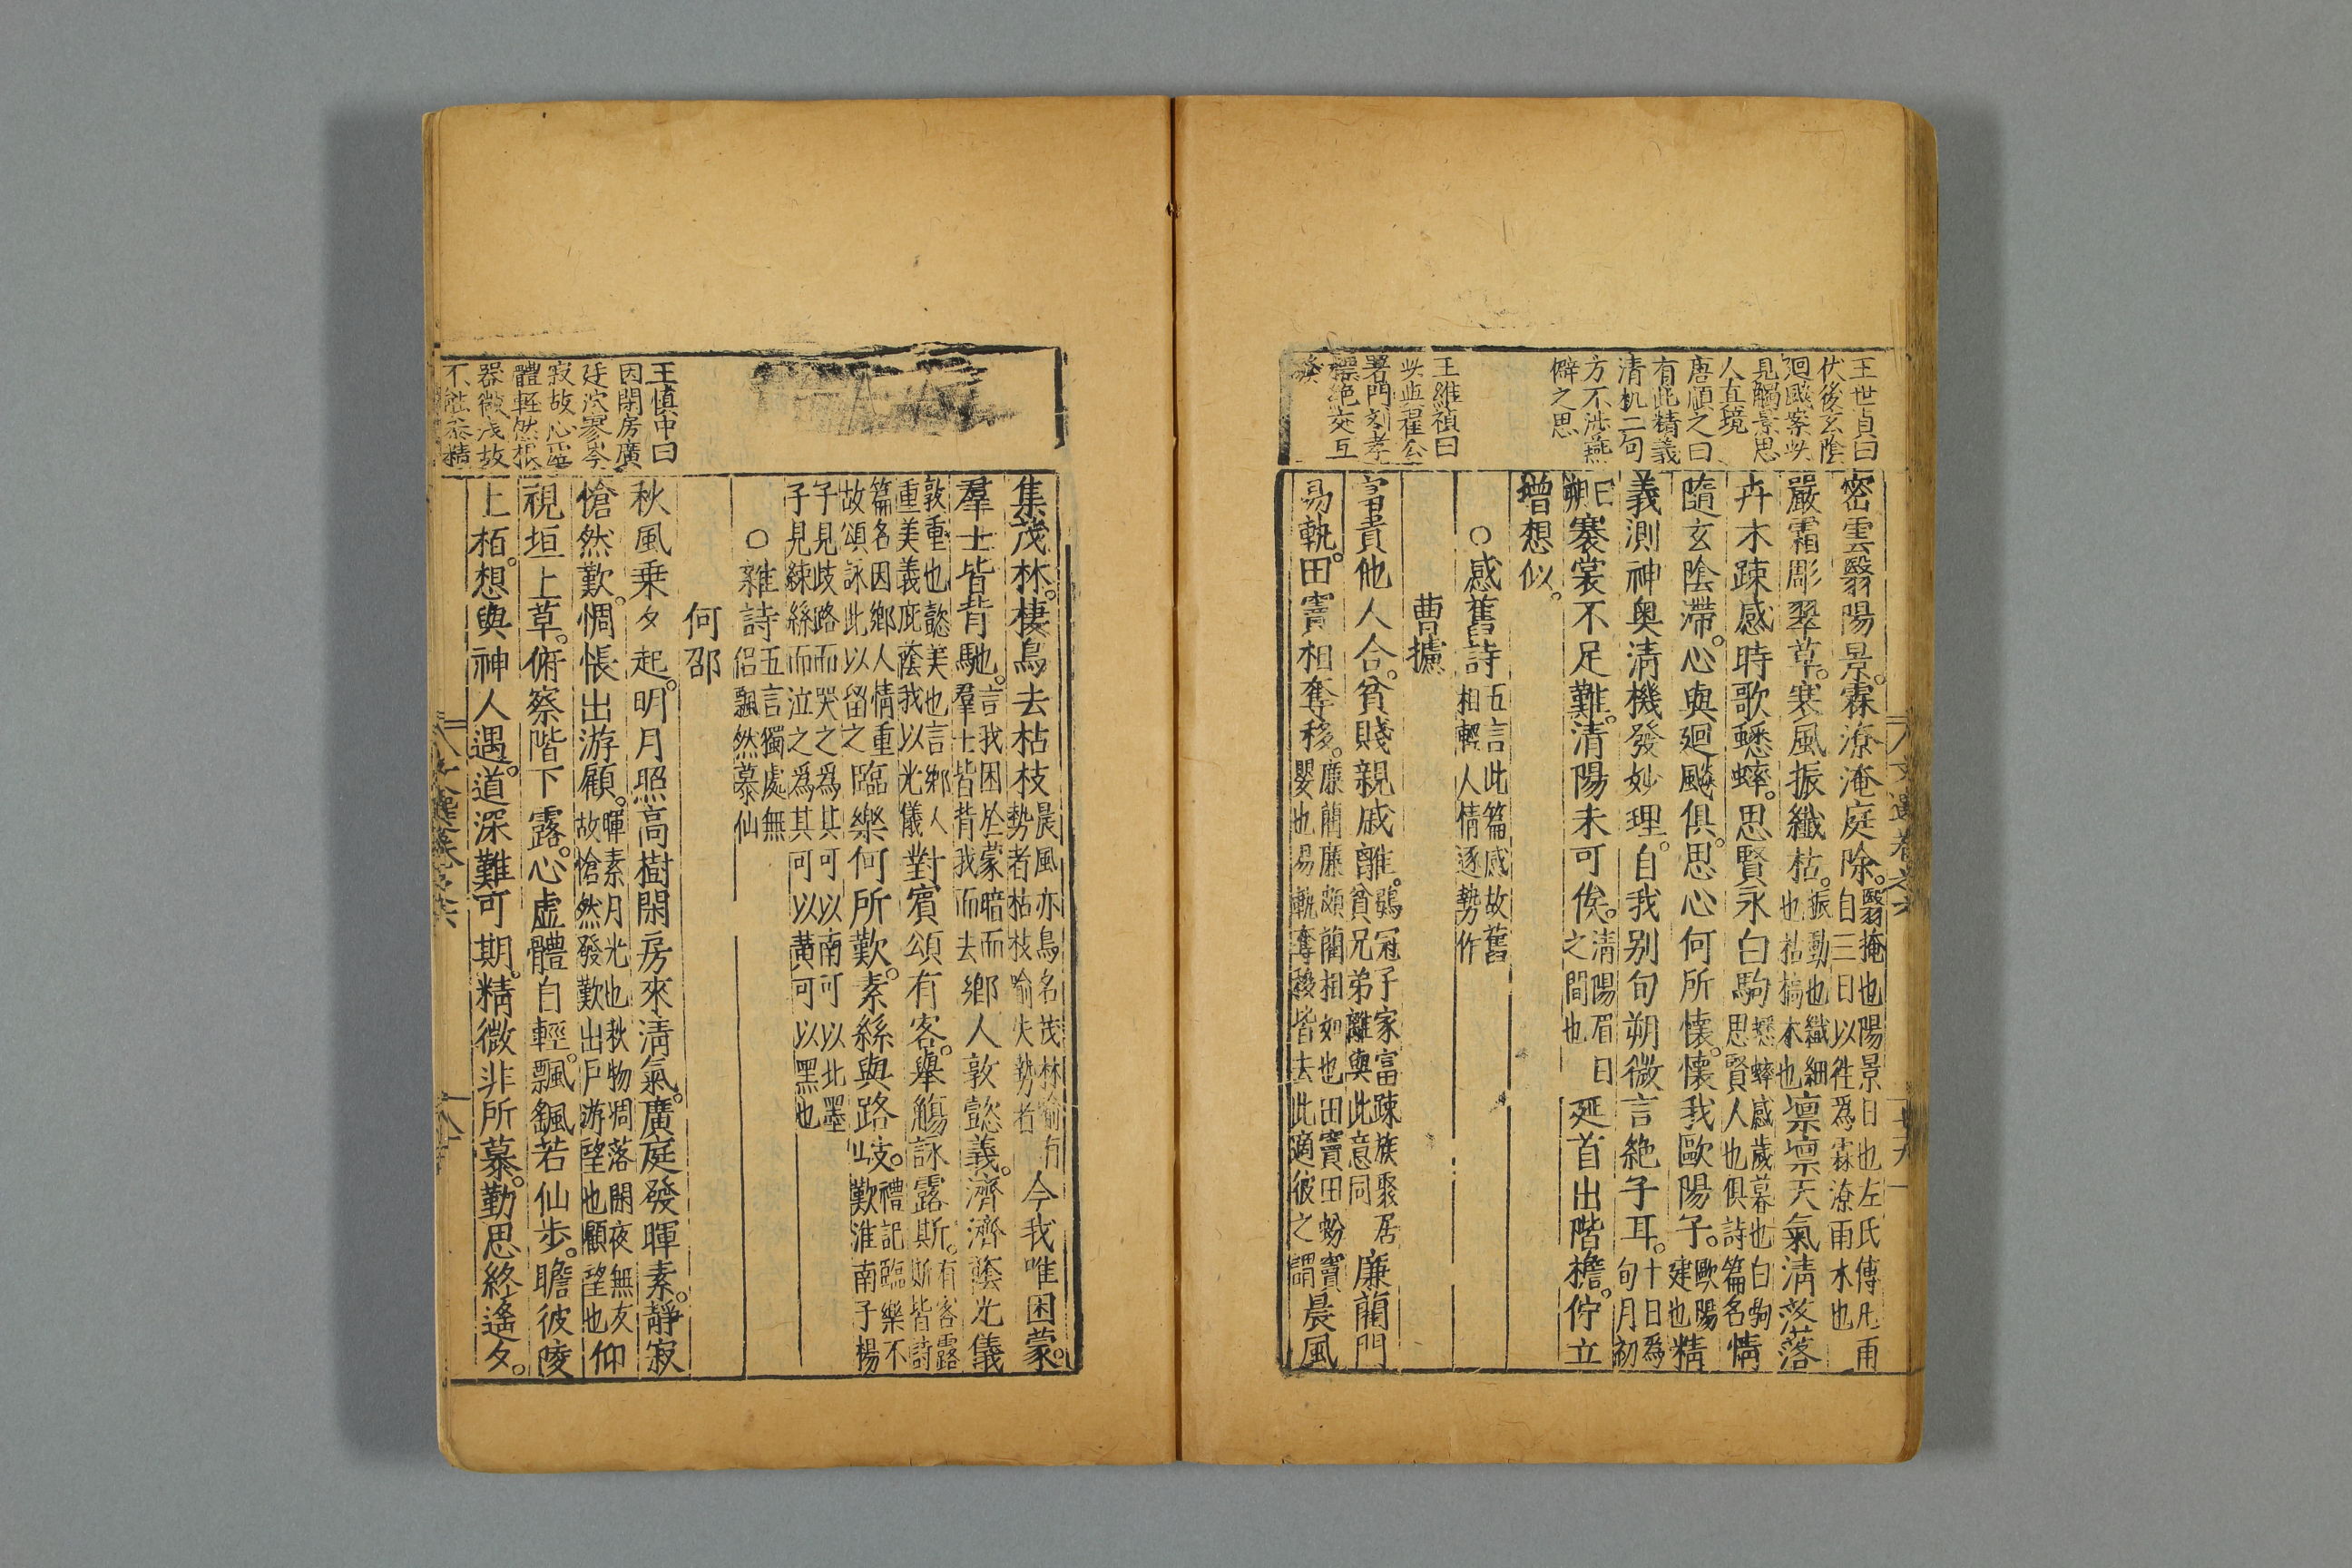 王世貞曰
伏後玄陰
廻飈案此
見觸景思
人直境
唐順之曰
有此精義
清机二句
方不涉燕
僻之思
王維禎曰
此與翟公
署門刻孝
標絶交互
發
密雲翳陽景。霖潦淹庭除。翳掩也陽景日也左氏傳凡雨
自三日以徃爲霖潦雨水也
嚴霜彫翠草。寒風振纖枯。振動也纖細
也枯槁木也凛凛天氣清落落
卉木踈感時歌蟋蟀。思賢永白駒蟋蟀感歲暮也白駒
思賢人也俱詩篇名情
隨玄陰滯。心與廻飈俱。思心何所懷。懷我歐陽子。歐陽
建也精
義測神奥清機發妙理。自我别旬朔微言絶于耳。十日爲
旬月初
曰
朔褰裳不足難。清陽未可俟。清陽眉目
之間也延首出階檐。佇立
增想似。
○感舊詩五言此篇感故舊
相輕人情逐勢作
曹攄
富貴他人合。貧賤親戚離。鶡冠子家富踈族聚居
貧兄弟離與此意同廉藺門
易軌。田竇相奪移。廉藺廉頗藺相如也田竇田蚡竇
嬰也易軌奪移皆去此適彼之謂晨風
集茂林。棲鳥去枯枝晨風亦鳥名茂林喻有
勢者枯枝喻失勢者今我唯困蒙。
羣士皆背馳。言我困於蒙暗而
羣士皆背我而去鄉人敦懿義。濟濟蔭光儀
敦重也懿美也言鄉人
重美義庇蔭我以光儀對賓頌有客。舉觴詠露斯。有客露
斯皆詩
篇名因鄉人情重
故頌詠此以留之臨樂何所歎。素絲與路岐。禮記臨樂不
歎淮南子楊
子見歧路而哭之爲其可以南可以北墨
子見練絲而泣之爲其可以黄可以黑也
○雜詩五言獨處無
侣飄然慕仙
何邵
秋風乗夕起。明月照高樹閑房來清氣。廣庭發暉素。靜寂
愴然歎。惆悵出游顧。暉素月光也秋物凋落閑夜無友
故愴然發歎出戶游望也顧望也仰
視垣上草。俯察階下露。心虚體自輕。飄颻若仙步。瞻彼陵
上栢。想與神人遇。道深難可期。精微非所慕。勤思終遙夕。
王慎中曰
因閑房廣
廷泬寥岑
寂故心虚
體輕然根
器微淺故
不能泰精